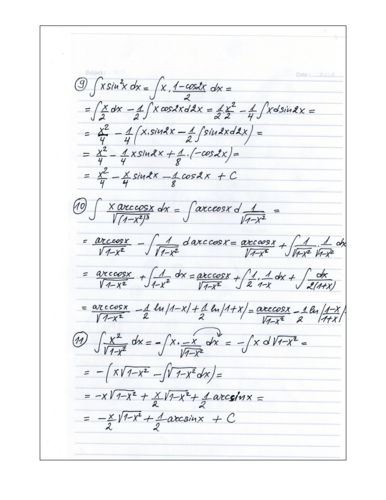 ⑨ ∫x sin²x dx = ∫x · (1-cos2x)/2 dx =
= ∫x/2 dx - 1/2 ∫x cos2x dx = 1/2 x²/2 - 1/4 ∫x d sin2x =
= x²/4 - 1/4 (x.sin2x - 1/2 ∫sin2x d2x) =
= x²/4 - 1/4 x sin2x + 1/8 . (-cos2x) =
= x²/4 - x/4 sin2x - 1/8 cos2x + C
⑩ ∫ x arccosx/√(1-x²)³ dx = ∫arccosx d 1/√1-x² =
= arccosx/√1-x² - ∫ 1/√1-x² d arccosx = arccosx/√1-x² + ∫ 1/√1-x² . 1/√1-x² dx
= arccosx/√1-x² + ∫ 1/1-x² dx = arccosx/√1-x² + ∫ 1/2 . 1/1-x dx + ∫ dx/2(1+x)
= arccosx/√1-x² - 1/2 ln|1-x| + 1/2 ln|1+x| = arccosx/√1-x² - 1/2 ln|1-x/1+x|
⑪ ∫ x²/√1-x² dx = -∫x . -x/√1-x² dx = -∫x d√1-x² =
= -(x√1-x² - ∫√1-x² dx) =
= -x√1-x² + x/2 √1-x² + 1/2 arcsinx =
= -x/2 √1-x² + 1/2 arcsinx + C